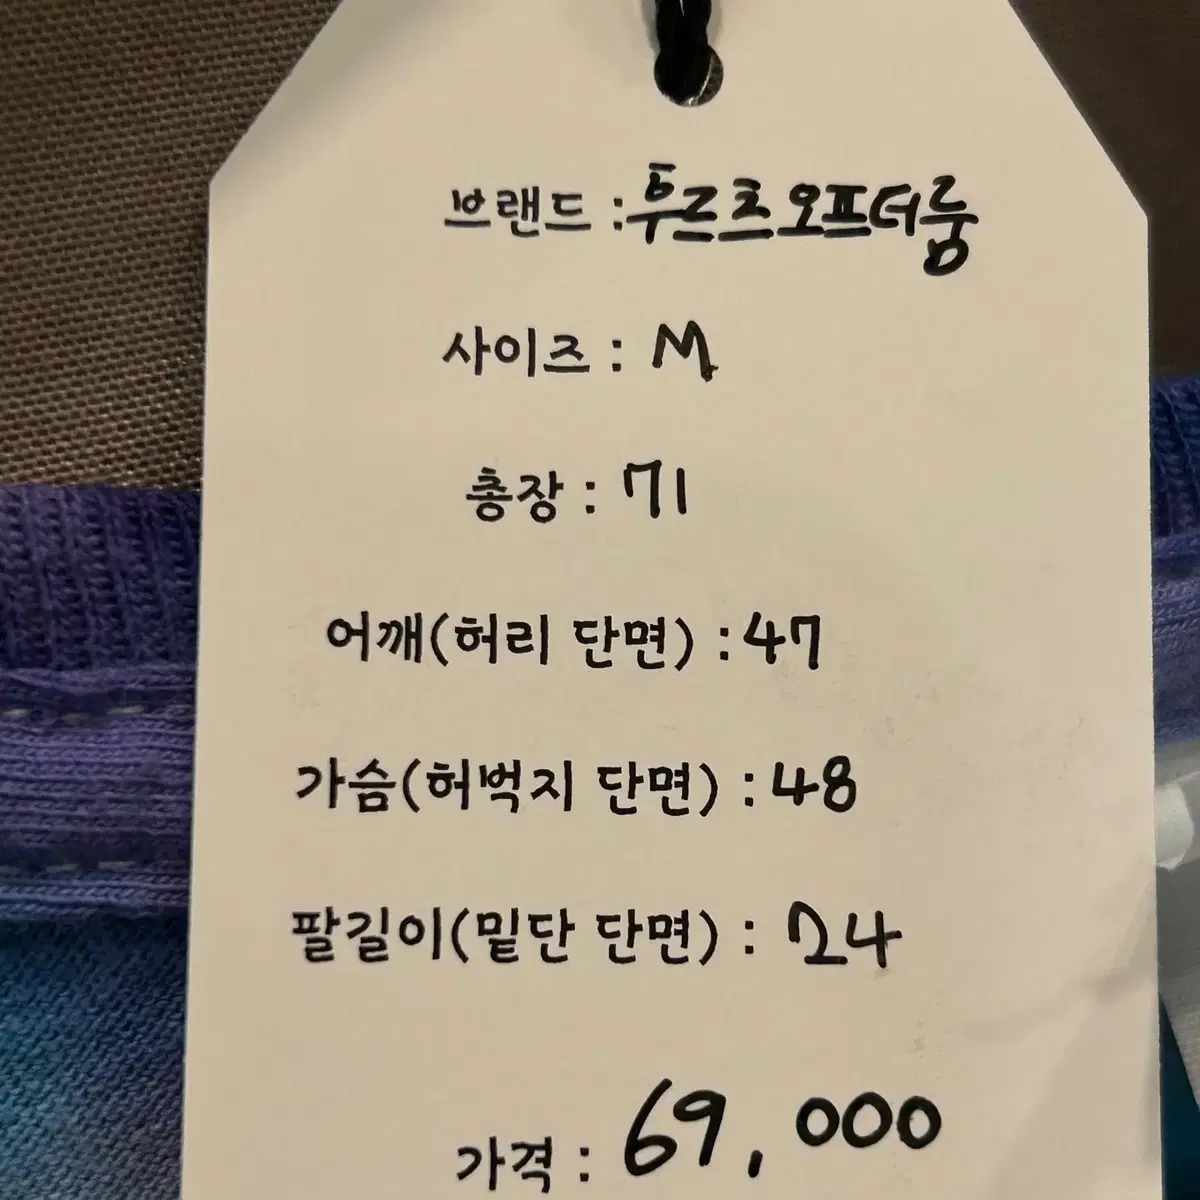 브랜드 : 후르츠오프더룸
사이즈 : M
총장 : 71
어깨(허리 단면) : 47
가슴(허벅지 단면) : 48
팔길이(밑단 단면) : 24
가격 : 69,000